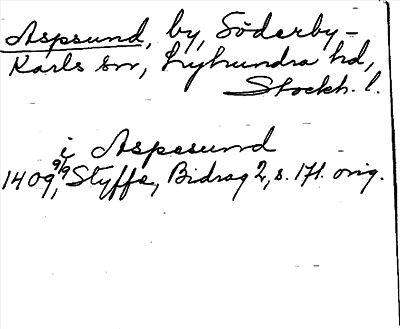 Aspsund, by, Söderby-
Karls sn, Lyhundra hd,
Stockh. l.
i Aspesund
1409 9/9, Styffe, Bidrag 2, s. 171. orig.